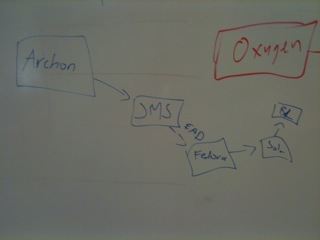 Archon
Oxygen
JMS
EAD
Fedora
Solr